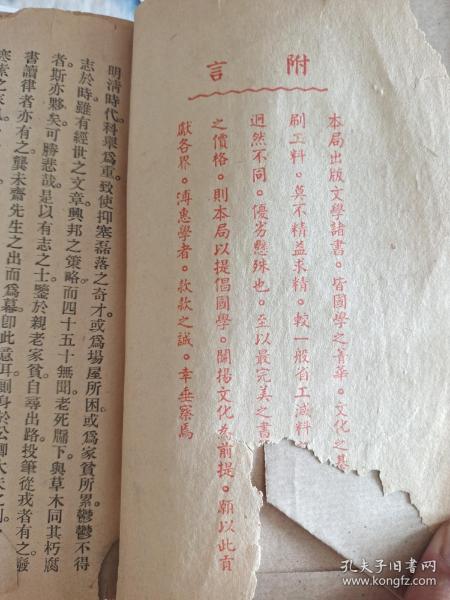 附言
本局出版文學諸書。皆國學之菁華。文化之基
刷工料。莫不精益求精。較一般省工減料
迥然不同。優劣懸殊也。至以最完美之書
之價格。則本局以提倡國學。闡揚文化為前提。願以此貢
獻各界。溥惠學者。款款之誠。幸垂察焉
明淸時代科舉爲重致使抑塞磊落之奇才或爲場屋所困或爲家貧所累鬱鬱不得
志於時雖有經世之文章興邦之策略而四十五十無聞老死牖下與草木同其朽腐
者斯亦夥矣可勝悲哉是以有志之士鑒於親老家貧自尋出路投筆從戎者有之廢
書讀律者亦有之龔未齋先生之出而爲幕卽此意耳側身於公卿大夫之
孔夫子旧书网
www.kongfz.com